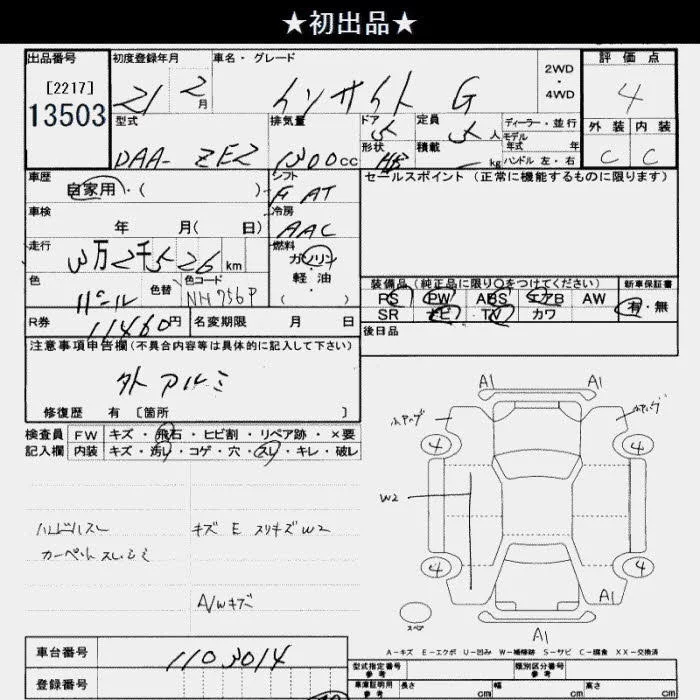 ★初出品★
出品番号
[2217]
13503
初度登録年月
21 2月
車名・グレード
インサイト G
2WD
・
4WD
評価点
4
外装 内装
C C
型式
DAA- ZE2
排気量
1300cc
ドア
5
定員
5人
形状
HB
積載
kg
ディーラー・並行
モデル
年式 年
ハンドル 左・右
車歴
自家用・( )
シフト
F AT
冷房
AAC
車検
年 月( 日)
走行
3万2千526km
燃料
ガソリン
軽・油
( )
色
パール
色替
色コード
NH756P
R券
11460円
名変期限 月 日
セールスポイント(正常に機能するものに限ります)
装備品(純正品に限り○をつけてください)
PS PW ABS エアB AW
SR ナビ TV カワ
新車保証書
有・無
後日品
注意事項申告欄(不具合内容等は具体的に記入して下さい)
外アルミ
修復歴 有 [箇所 ]
検査員
記入欄
FW キズ・飛石・ヒビ割・リペア跡・×要
内装 キズ・汚レ・コゲ・穴・スレ・キレ・破レ
ハンドルスレ
カーペットスレ、シミ
キズ E スリキズ W2
A/Wキズ
A1 A1
4 4
W2
4 4
A1
スペア
A1
A-キズ E-エクボ U-凹み W-補修跡 S-サビ C-腐食 XX-交換済
車台番号
1103014
登録番号
型式指定番号
参考
類別区分番号
参考
車庫証明用
参考
長さ cm 幅 cm 高さ cm